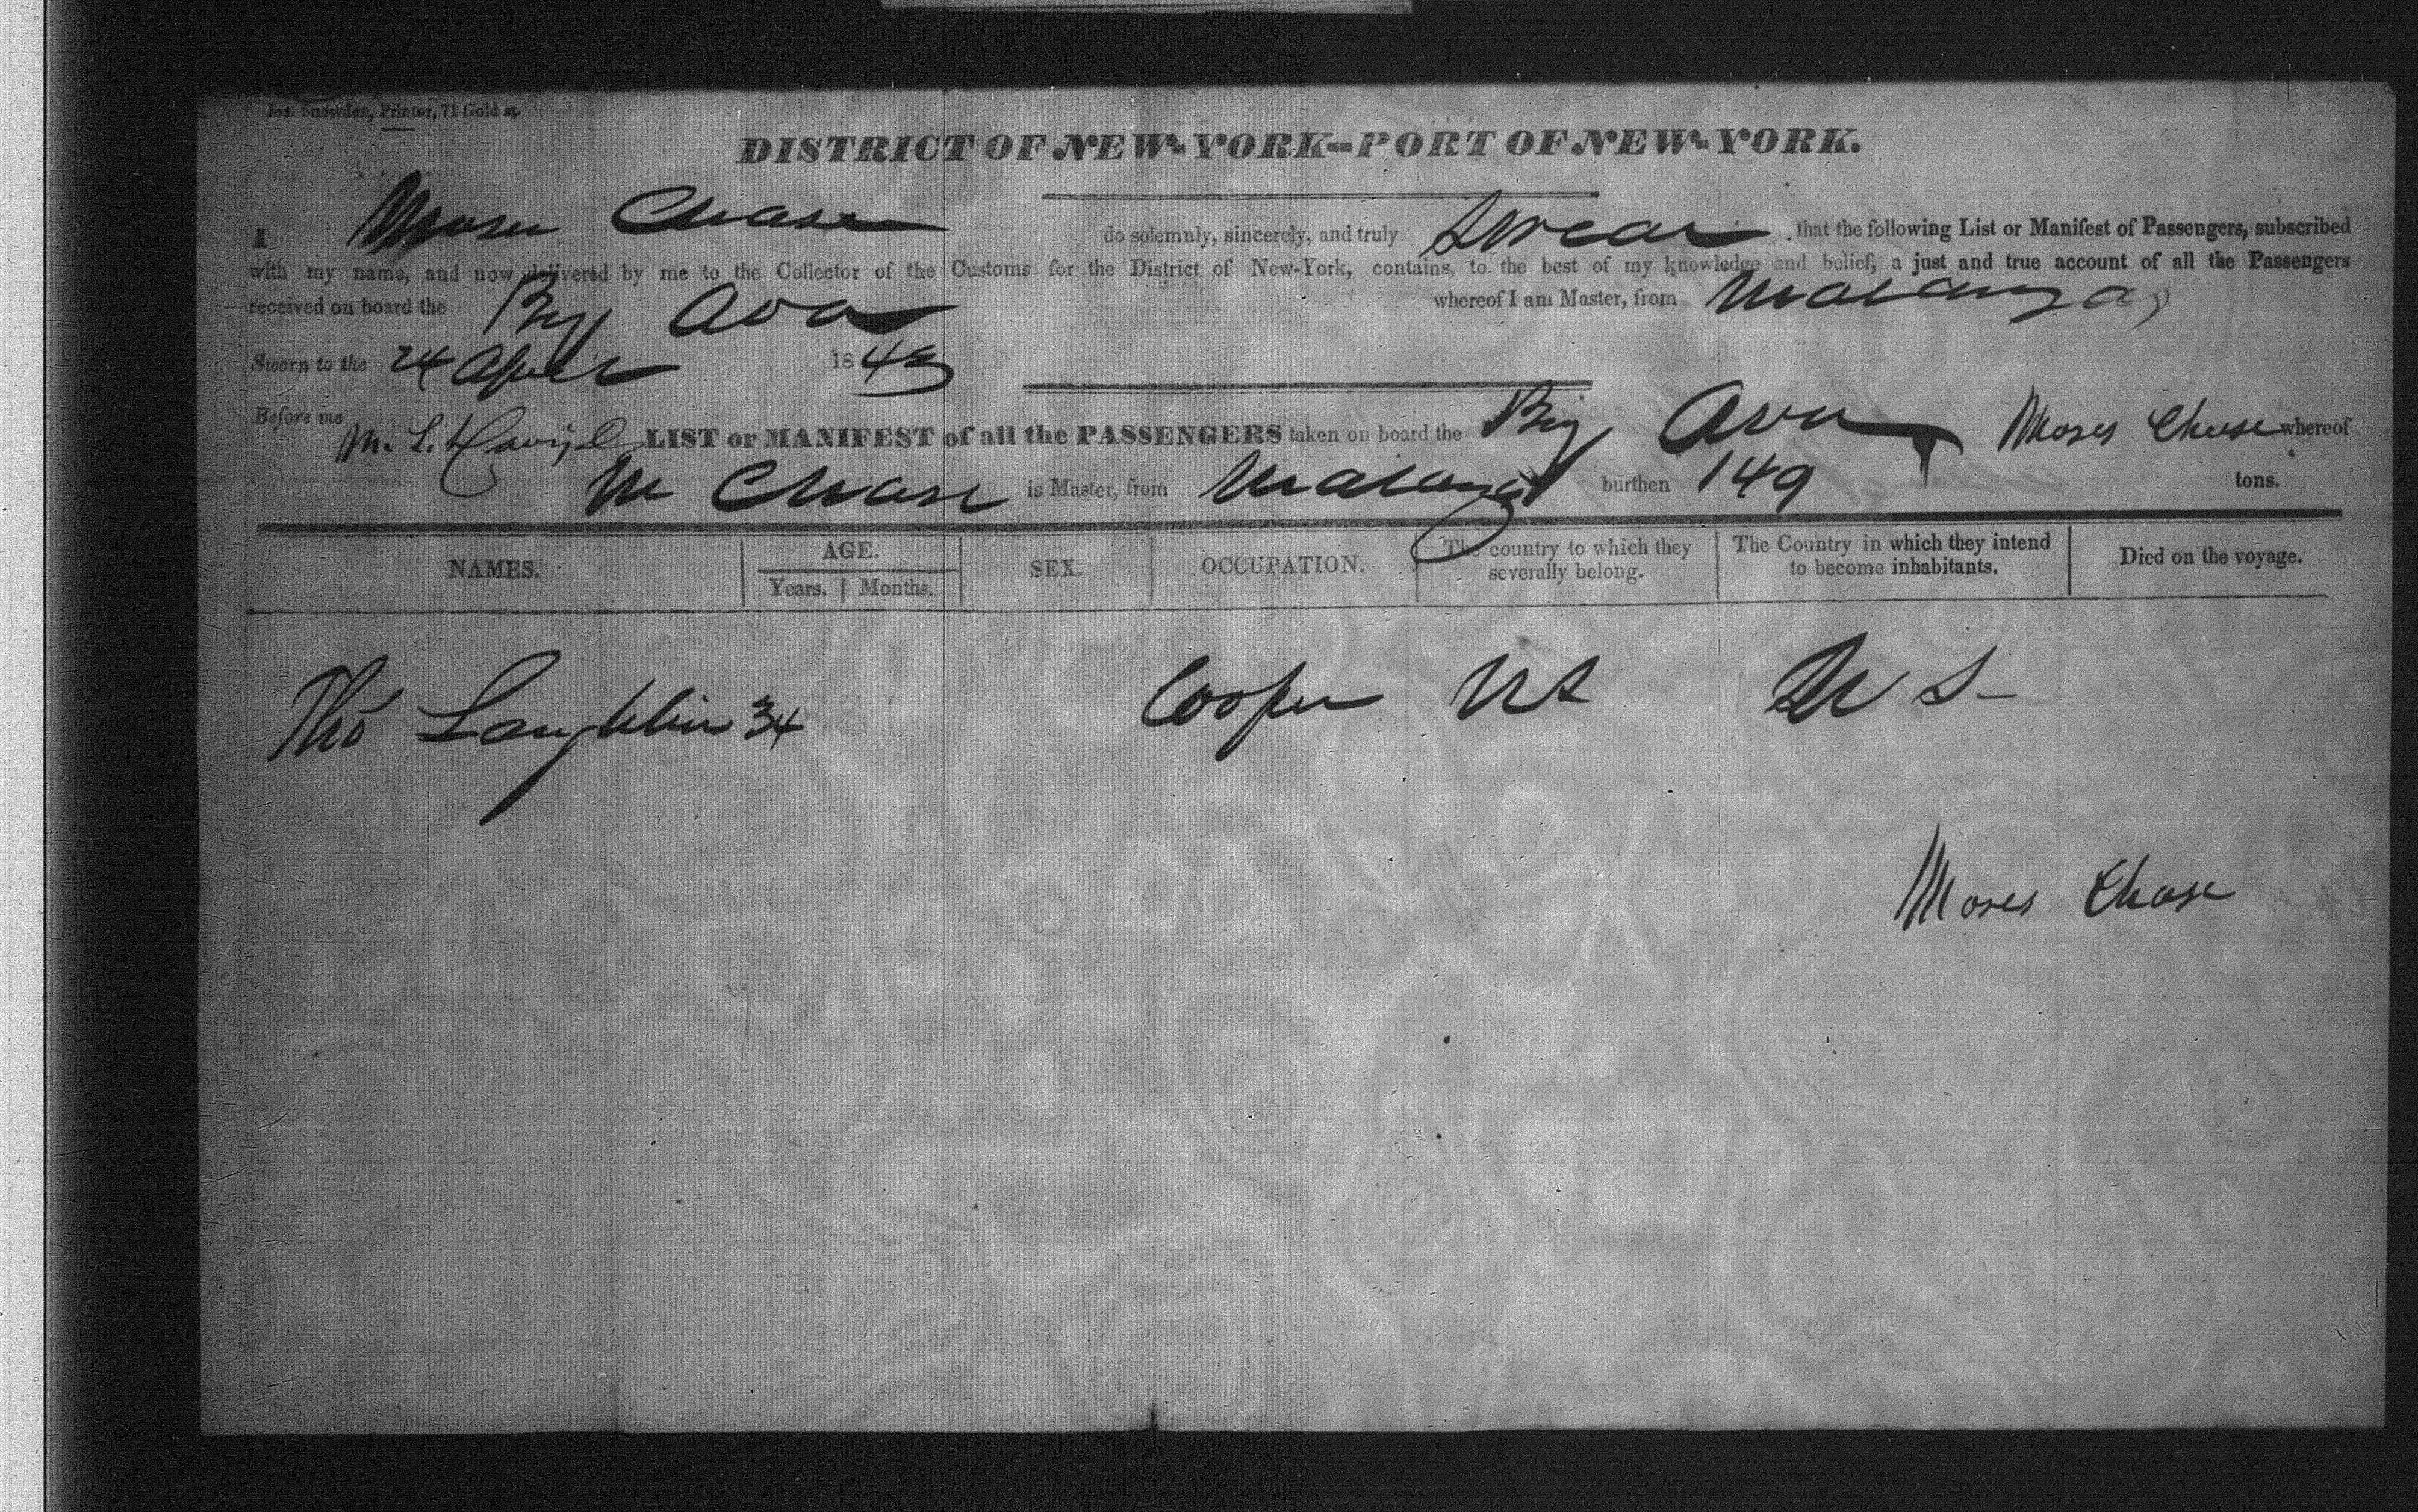 Jas. Snowden, Printer, 71 Gold st.
DISTRICT OF NEW-YORK--PORT OF NEW-YORK.
I Moses Chase do solemnly, sincerely, and truly Swear that the following List or Manifest of Passengers, subscribed
with my name, and now delivered by me to the Collector of the Customs for the District of New-York, contains, to the best of my knowledge and belief, a just and true account of all the Passengers
received on board the Brig Ava whereof I am Master, from Matanzas
Sworn to the 24 April 1843
Before me
LIST or MANIFEST of all the PASSENGERS taken on board the Brig Ava Moses Chase whereof
M Chase is Master, from Matanzas burthen 149 tons.
NAMES. AGE. SEX. OCCUPATION. The country to which they severally belong. The Country in which they intend to become inhabitants. Died on the voyage.
Years. Months.
Thos Laughlin 34 Cooper US US
Moses Chase